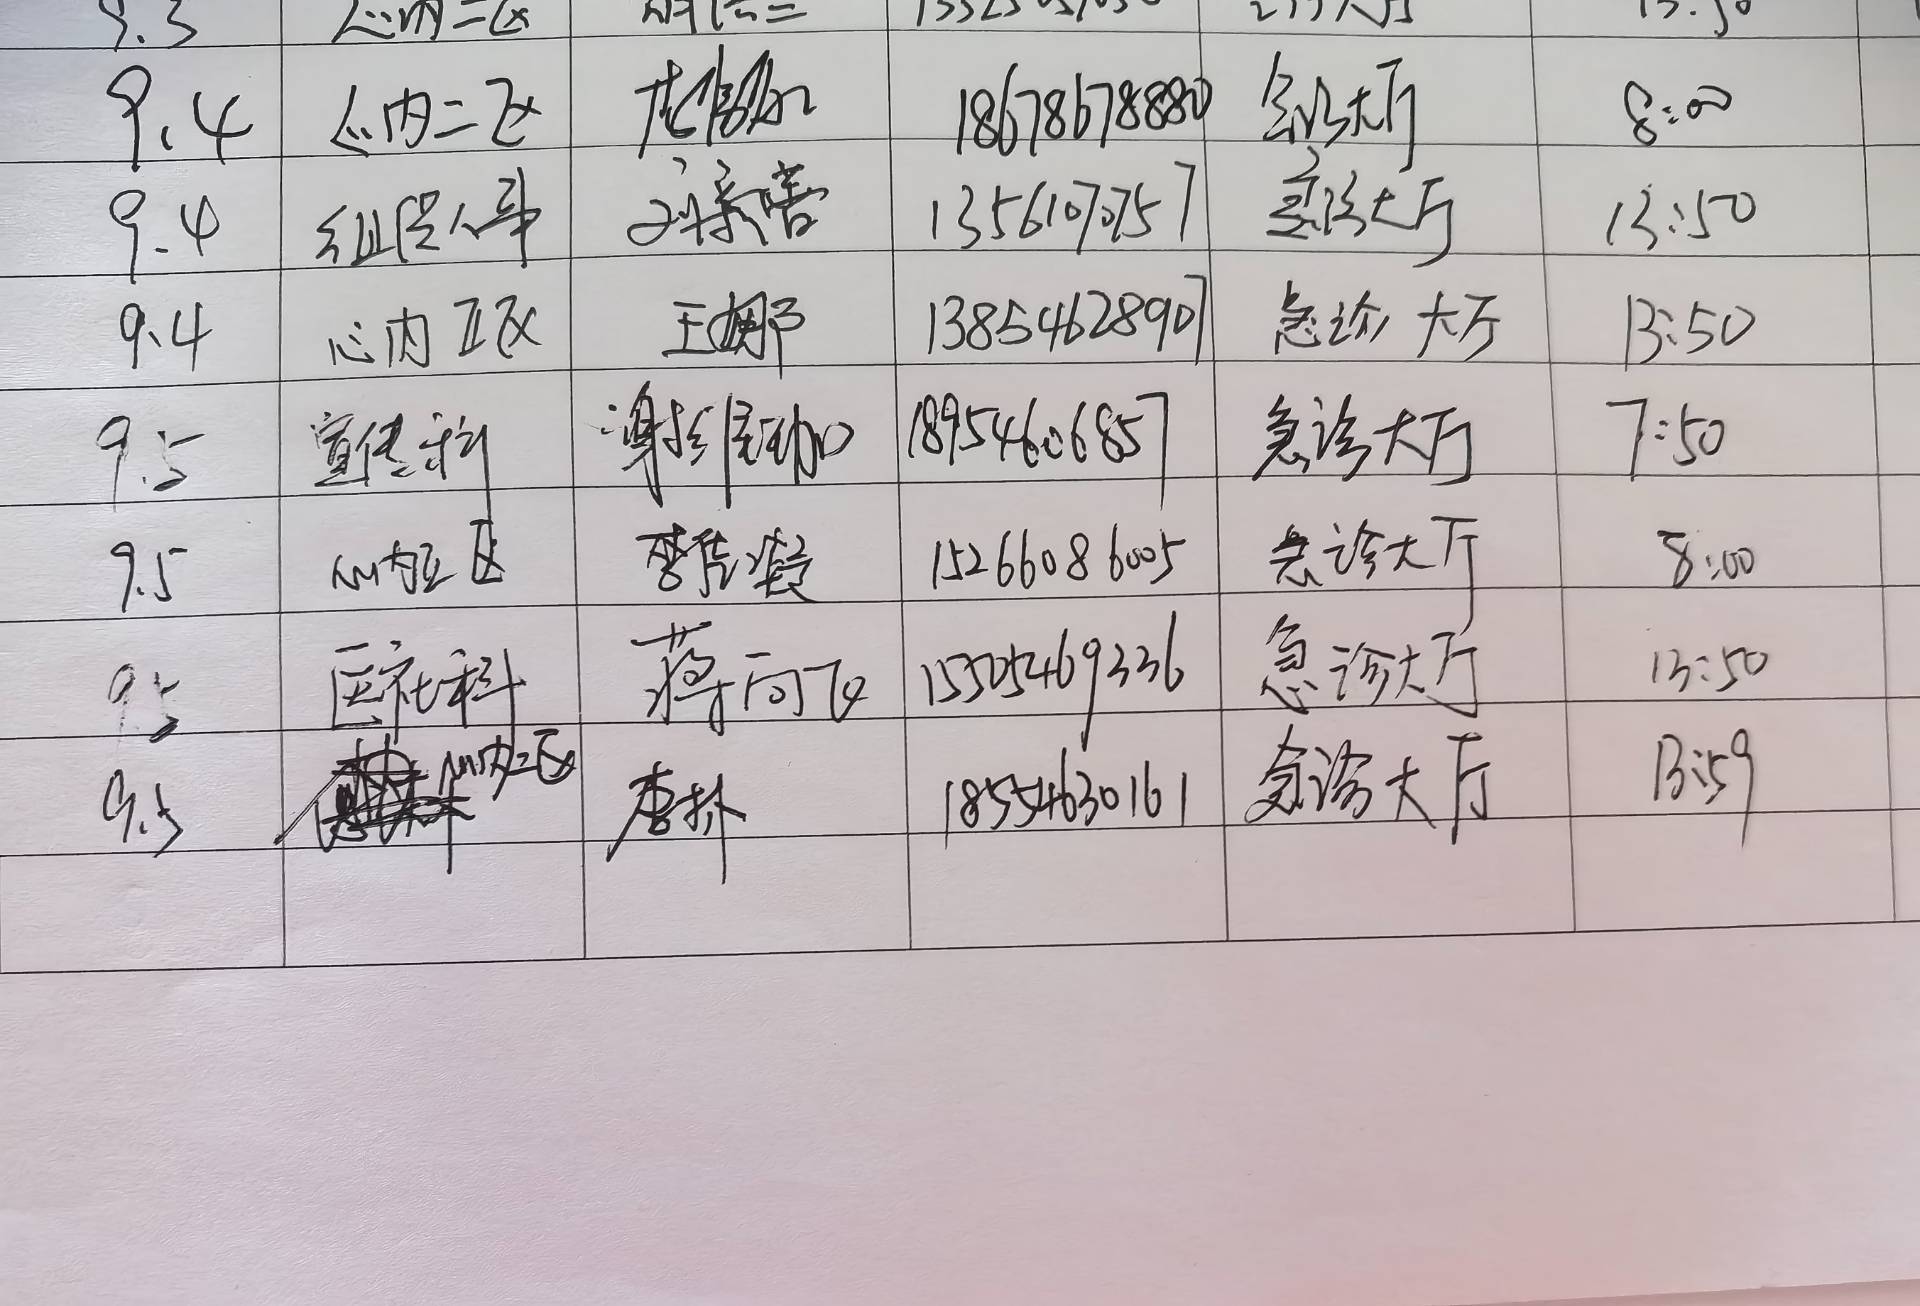 9.3 心内二区 13:50
9.4 心内二区 18678678880 急诊大厅 8:00
9.4 组织人事 13561070757 急诊大厅 13:50
9.4 心内五区 王娜 13854628907 急诊大厅 13:50
9.5 宣传科 18954606857 急诊大厅 7:50
9.5 心内五区 15266086005 急诊大厅 8:00
9.5 医社科 蒋向飞 15505469336 急诊大厅 13:50
9.5 心内二区 18554630161 急诊大厅 13:59